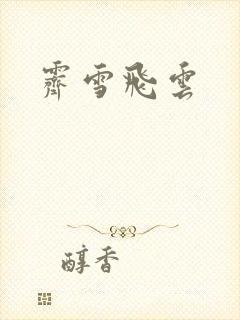 霽雪飛雲
醇香